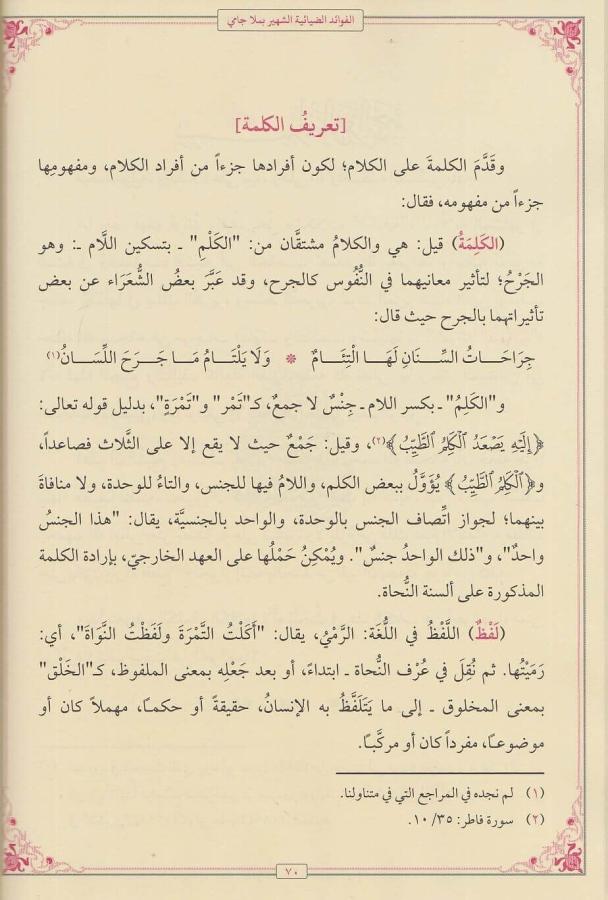 الفوائد الضيائية الشهير بملا جامي
[تعريفُ الكلمة]
وقَدَّمَ الكلمةَ على الكلام؛ لكون أفرادها جزءاً من أفراد الكلام، ومفهومِها
جزءاً من مفهومه، فقال:
(الكَلِمَةُ) قيل: هي والكلامُ مشتقَّان من: "الكَلْمِ" ـ بتسكين اللَّام ـ: وهو
الجَرْحُ؛ لتأثير معانيهما في النُّفُوس كالجرح، وقد عَبَّرَ بعضُ الشُّعَرَاء عن بعض
تأثيراتهما بالجرح حيث قال:
جِرَاحَـــاتُ السِّــــنَانِ لَهَــــا الْتِئَــــامٌ * وَلَا يَلْتَـــامُ مَـــا جَـــرَحَ اللِّسَـــانُ(١)
و"الكَلِمُ" ـ بكسر اللام ـ جِنْسٌ لا جمعٌ، كـ"تَمْر" و"تَمْرَةٍ"، بدليل قوله تعالى:
﴿إِلَيْهِ يَصْعَدُ ٱلْكَلِمُ ٱلطَّيِّبُ﴾(٢)، وقيل: جَمْعٌ حيث لا يقع إلا على الثَّلاث فصاعداً،
و﴿ٱلْكَلِمُ ٱلطَّيِّبُ﴾ يُؤَوَّلُ ببعض الكلم، واللامُ فيها للجنس، والتاءُ للوحدة، ولا منافاةَ
بينهما؛ لجواز اتِّصاف الجنس بالوحدة، والواحد بالجنسيَّة، يقال: "هذا الجنسُ
واحدٌ"، و"ذلك الواحدُ جنسٌ". ويُمْكِنُ حَمْلُها على العهد الخارجيّ، بإرادة الكلمة
المذكورة على ألسنة النُّحاة.
(لَفْظٌ) اللَّفْظُ في اللُّغَة: الرَّمْيُ، يقال: "أَكَلْتُ التَّمْرَةَ ولَفَظْتُ النَّوَاةَ"، أي:
رَمَيْتُها. ثم نُقِلَ في عُرْف النُّحاة ـ ابتداءً، أو بعد جَعْلِه بمعنى الملفوظ، كـ"الخَلْق"
بمعنى المخلوق ـ إلى ما يَتَلَفَّظُ به الإنسانُ، حقيقةً أو حكمـاً، مهملاً كان أو
موضوعـاً، مفرداً كان أو مركَّبـاً.
(١) لم نجده في المراجع التي في متناولنا.
(٢) سورة فاطر: ٣٥/ ١٠.
٧٠